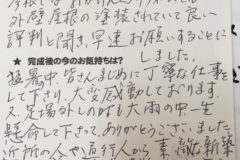 外壁屋根の塗装されていて良い
評判と聞き、早速お願いすることに
しました。
★ 完成後の今のお気持ちは?
猛暑中皆さんまじめに丁寧な仕事
して下さり、大変感動しております。
又、足場外しのは も大雨の中一生
懸命して下さって、ありがとうございました。
近所の人や通行人から素敵新築